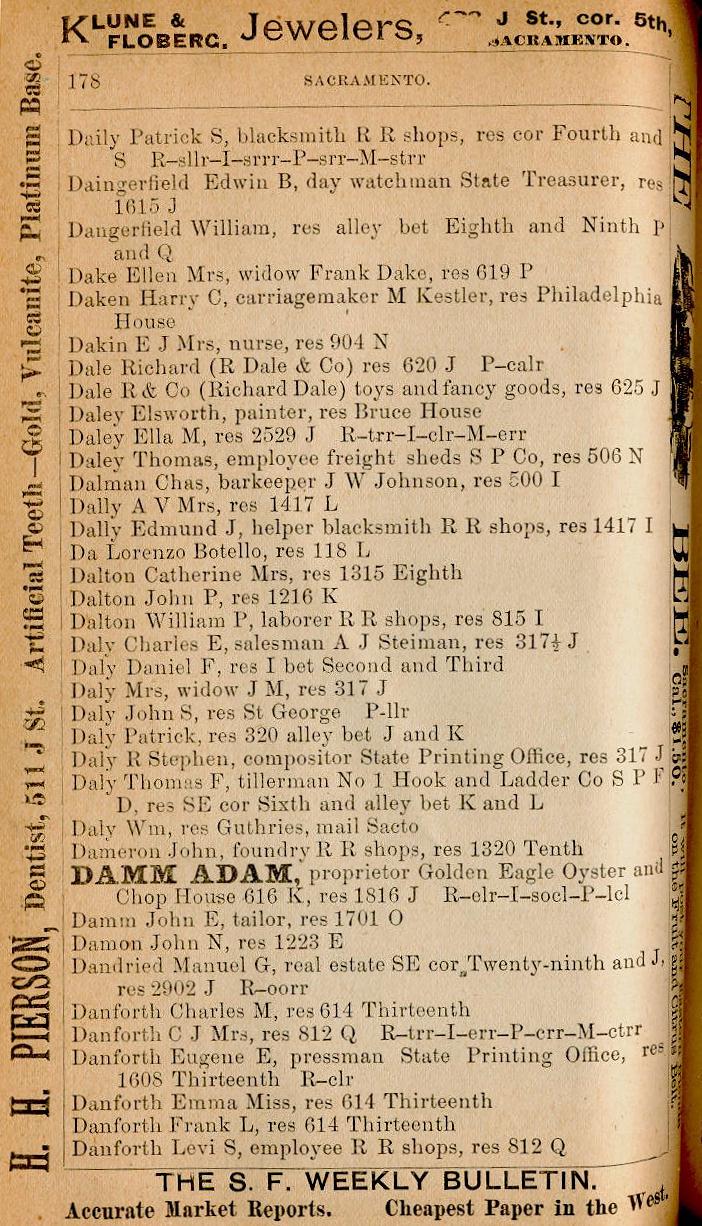 KLUNE & FLOBERG. Jewelers, J St., cor. 5th, SACRAMENTO.
178 SACRAMENTO.
Daily Patrick S, blacksmith R R shops, res cor Fourth and
S R–sllr–I–srrr–P–srr–M–strr
Daingerfield Edwin B, day watchman State Treasurer, res
1615 J
Dangerfield William, res alley bet Eighth and Ninth P
and Q
Dake Ellen Mrs, widow Frank Dake, res 619 P
Daken Harry C, carriagemaker M Kestler, res Philadelphia
House
Dakin E J Mrs, nurse, res 904 N
Dale Richard (R Dale & Co) res 620 J P–calr
Dale R & Co (Richard Dale) toys and fancy goods, res 625 J
Daley Elsworth, painter, res Bruce House
Daley Ella M, res 2529 J R–trr–I–clr–M–err
Daley Thomas, employee freight sheds S P Co, res 506 N
Dalman Chas, barkeeper J W Johnson, res 500 I
Dally A V Mrs, res 1417 L
Dally Edmund J, helper blacksmith R R shops, res 1417 I
Da Lorenzo Botello, res 118 L
Dalton Catherine Mrs, res 1315 Eighth
Dalton John P, res 1216 K
Dalton William P, laborer R R shops, res 815 I
Daly Charles E, salesman A J Steiman, res 317½ J
Daly Daniel F, res I bet Second and Third
Daly Mrs, widow J M, res 317 J
Daly John S, res St George P-llr
Daly Patrick, res 320 alley bet J and K
Daly R Stephen, compositor State Printing Office, res 317 J
Daly Thomas F, tillerman No 1 Hook and Ladder Co S P F
D, res SE cor Sixth and alley bet K and L
Daly Wm, res Guthries, mail Sacto
Dameron John, foundry R R shops, res 1320 Tenth
DAMM ADAM, proprietor Golden Eagle Oyster and
Chop House 616 K, res 1816 J R–elr–I–socl–P–lcl
Damm John E, tailor, res 1701 O
Damon John N, res 1223 E
Dandried Manuel G, real estate SE cor Twenty-ninth and J,
res 2902 J R–oorr
Danforth Charles M, res 614 Thirteenth
Danforth C J Mrs, res 812 Q R–trr–I–err–P–crr–M–ctrr
Danforth Eugene E, pressman State Printing Office, res
1608 Thirteenth R–clr
Danforth Emma Miss, res 614 Thirteenth
Danforth Frank L, res 614 Thirteenth
Danforth Levi S, employee R R shops, res 812 Q
THE S. F. WEEKLY BULLETIN.
Accurate Market Reports. Cheapest Paper in the West.
H. H. PIERSON, Dentist, 511 J St. Artificial Teeth—Gold, Vulcanite, Platinum Base.
THE BEE.
Cal., $1.50.
on the Fruit and Citrus Belt.